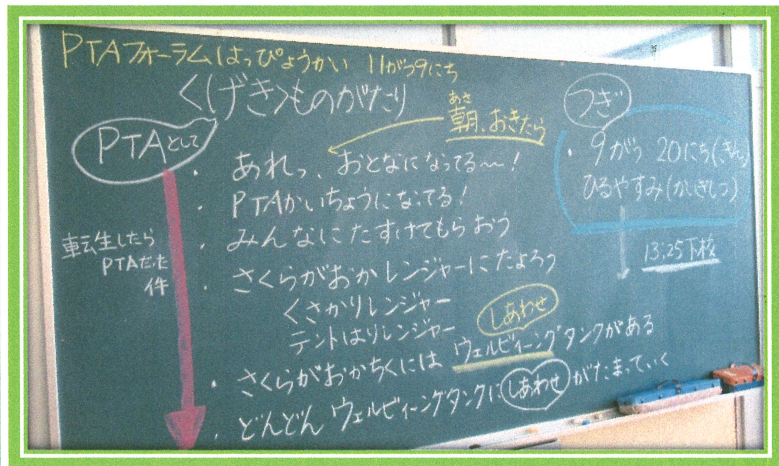 PTAフォーラムはっぴょうかい 11がつ9にち
<げき>ものがたり
PTAとして
あさ
朝、おきたら
・あれっ、おとなになってる~~!
・PTAかいちょうになってる!
・みんなにたすけてもらおう
・さくらがおかレンジャーにたよろう
くさかりレンジャー
テントはりレンジャー
しあわせ
・さくらがおかちくには ウェルビィーングタンクがある
・どんどん ウェルビィーングタンクに しあわせ がたまっていく
転生したら
PTAだった
件
つぎ
・9がつ 20にち(きん)
ひるやすみ(かいぎしつ)
13:25下校